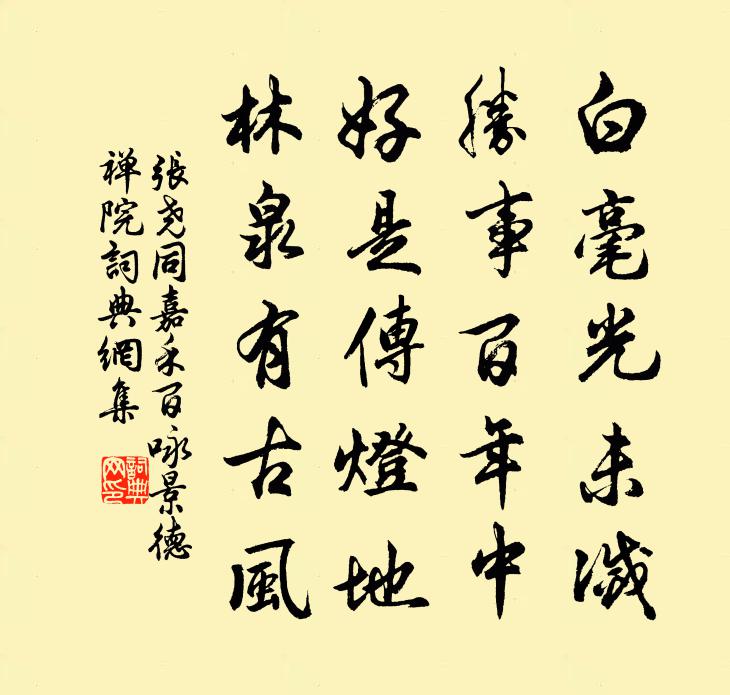 白毫光未滅
勝事百年中
好是傳燈地
林泉有古風
張尧同嘉禾百咏景德
禅院詞典網集
詞典
网印